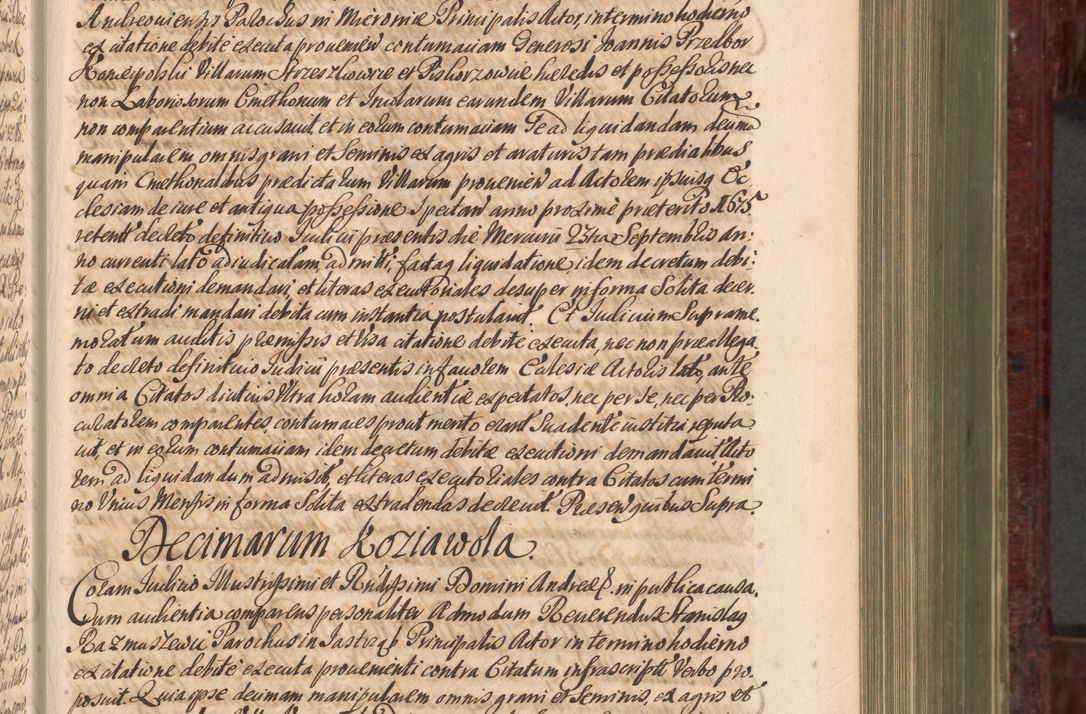 Andreoviensis Parochus in Mieronice Principalis Actor, in termino hodierno
ex citatione debite executa proveniente contumaciam Generosi Joannis Przedbor
Koniecpolski Villarum Strzeszkowice et Piskorzowice heredis et possessoris nec
non Laboriosorum Cmethonum et Incolarum earundem Villarum Citatorum
non comparentium accusavit et in eorum contumaciam se ad liquidandam decima
manipularem omnis grani et Seminis ex agris et araturis tam prædialibus
quam Cmethonalibus prædictarum Villarum provenien ad Actorem ipsiusq Ec
clesiam de iure et antiqua possessione Spectan anno proxime præterito 1675
retent decreto definitivo Iudicii præsentis die Mercurii 23tia Septembris an
no currenti lato adiudicatam, admitti, factaq liquidatione idem decretum debi
tæ executioni demandari et literas executoriales desuper in forma Solita decer
ni et extradi mandari debita cum instantia postulavit. Et Iudicium Supra me
moratum auditis præmissis et Visa citatione debite executa, nec non præallega
to decreto definitivo Iudicii præsentis in favorem Ecclesiæ Actoris lato, ante
omnia Citatos diutius Ultra horam audientiæ expectatos, nec per Se, nec per Pro
curatorem comparentes contumaces prout merito erant Suadente iustitia reputa
vit, et in eorum contumaciam idem decretum debitæ executioni demandavit Acto
rem ad liquidandum admisit, et literas executoriales contra Citatos cum termi
no Unius Mensis in forma Solita extradendas decrevit. Præsen quibus Supra
Decimarum Koziawola.
Coram Iudicio Illustrissimi et Rndissimi Domini Andreæ in publica causa
rum audientia comparens personaliter Admodum Reverendus Stanislaq
Razmuszewic Parochus in Jastrząb Principalis Actor in termino hodierno
ex citatione debite executa provenienti contra Citatum infrascriptu Verbo pro
posuit. Quia ipse decimam manipularem omnis grani et Seminis, ex agris et